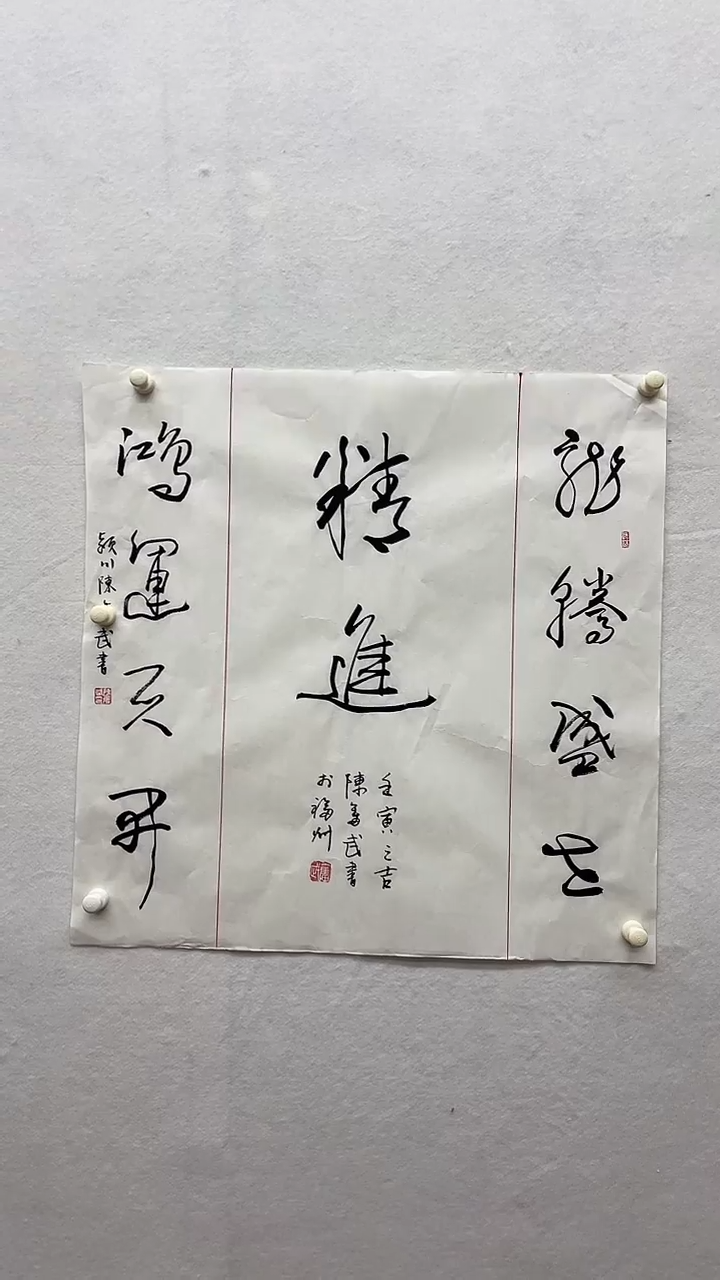 龍騰盛世
精進
壬寅之吉
陳奮武書
於福州
鴻運天開
潁川陳武書